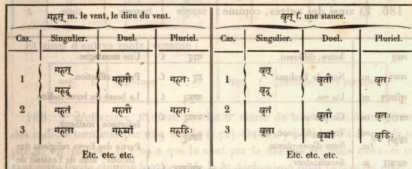 मरुत् m. le vent, le dieu du vent. वृत् f. une stance.
Cas. Singulier. Duel. Pluriel. Cas. Singulier. Duel. Pluriel.
1 मरुत् मरुद् मरुतौ मरुतः 1 वृत् वृद् वृतौ वृतः
2 मरुतं मरुतौ मरुतः 2 वृतं वृतौ वृतः
3 मरुता मरुद्भ्यां मरुद्भिः 3 वृता वृद्भ्यां वृद्भिः
Etc. etc. etc. Etc. etc. etc.